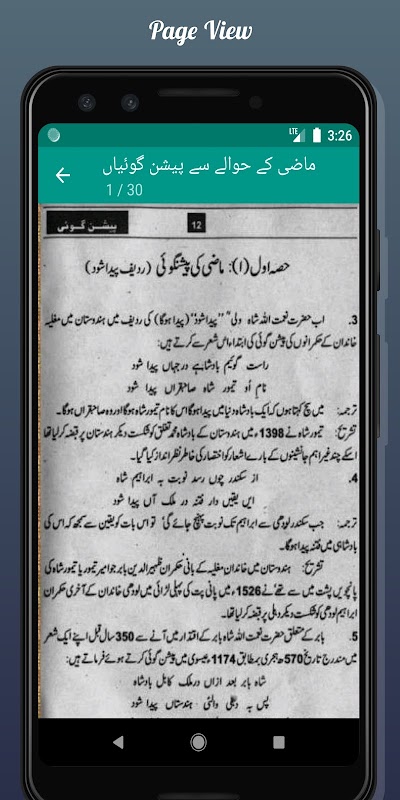 Page View
LTE 3:26
ماضی کے حوالے سے پیشن گوئیاں
1 / 30
پیشن گوئی
12
حصہ اول (۱): ماضی کی پیشنگوئی (ردیف پیدا شود)
3. اب حضرت نعمت اللہ شاہ ولی "پیدا شود" (پیدا ہوگا) کی ردیف میں ہندوستان میں مغلیہ
خاندان کے حکمرانوں کی پیشن گوئی کی ابتداء اس شعر سے کرتے ہیں:
راست گوئیم بادشاہے در جہاں پیدا شود
نام اُو تیمور شاہ صاحبقراں پیدا شود
ترجمہ: میں سچ کہتا ہوں کہ ایک بادشاہ دنیا میں پیدا ہوگا اس کا نام تیمور شاہ ہوگا اور وہ صاحبقراں ہوگا۔
تشریح: تیمور شاہ نے 1398ء میں ہندوستان کے بادشاہ محمد تغلق کو شکست دیکر ہندوستان پر قبضہ کر لیا تھا
اسکے چند غیر اہم جانشینوں کے بارے اشعار کو اختصار کی خاطر نظر انداز کیا گیا۔
4. از سکندر چوں رسد نوبت بہ ابراہیم شاہ
ایں یقیں دار فتنہ در ملک آں پیدا شود
ترجمہ: جب سکندر لودھی سے ابراہیم تک نوبت پہنچ جائے گی تو اس بات کو یقین سے سمجھ کہ اس کی
بادشاہی میں فتنہ پیدا ہوگا۔
تشریح: ہندوستان میں خاندان مغلیہ کے بانی حکمران ظہیر الدین بابر جو امیر تیمور یا تیمور شاہ کی
پانچویں پشت میں سے تھے نے 1526ء میں پانی پت کی پہلی لڑائی میں لودھی خاندان کے آخری حکمران
ابراہیم لودھی کو شکست دیکر دہلی پر قبضہ کر لیا تھا۔
5. بابر کے متعلق حضرت نعمت اللہ شاہ بابر کے اقتدار میں آنے سے 350 سال قبل اپنے ایک شعر
میں مندرج تاریخ 570ھ ہجری بمطابق 1174ء عیسوی میں پیشن گوئی کرتے ہوئے فرماتے ہیں:
شاہ بابر بعد ازاں در ملک کابل بادشاہ
پس بہ دہلی والئی ہندوستاں پیدا شود